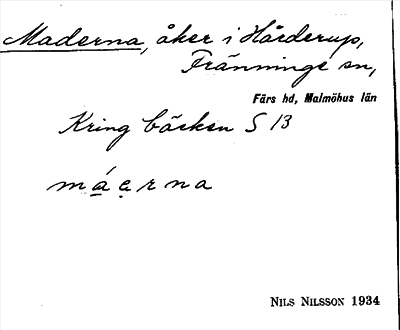 Maderna, åker i Hårderup,
Fränninge sn,
Färs hd, Malmöhus län
Kring bäcken S 13
máẹrna
NILS NILSSON 1934